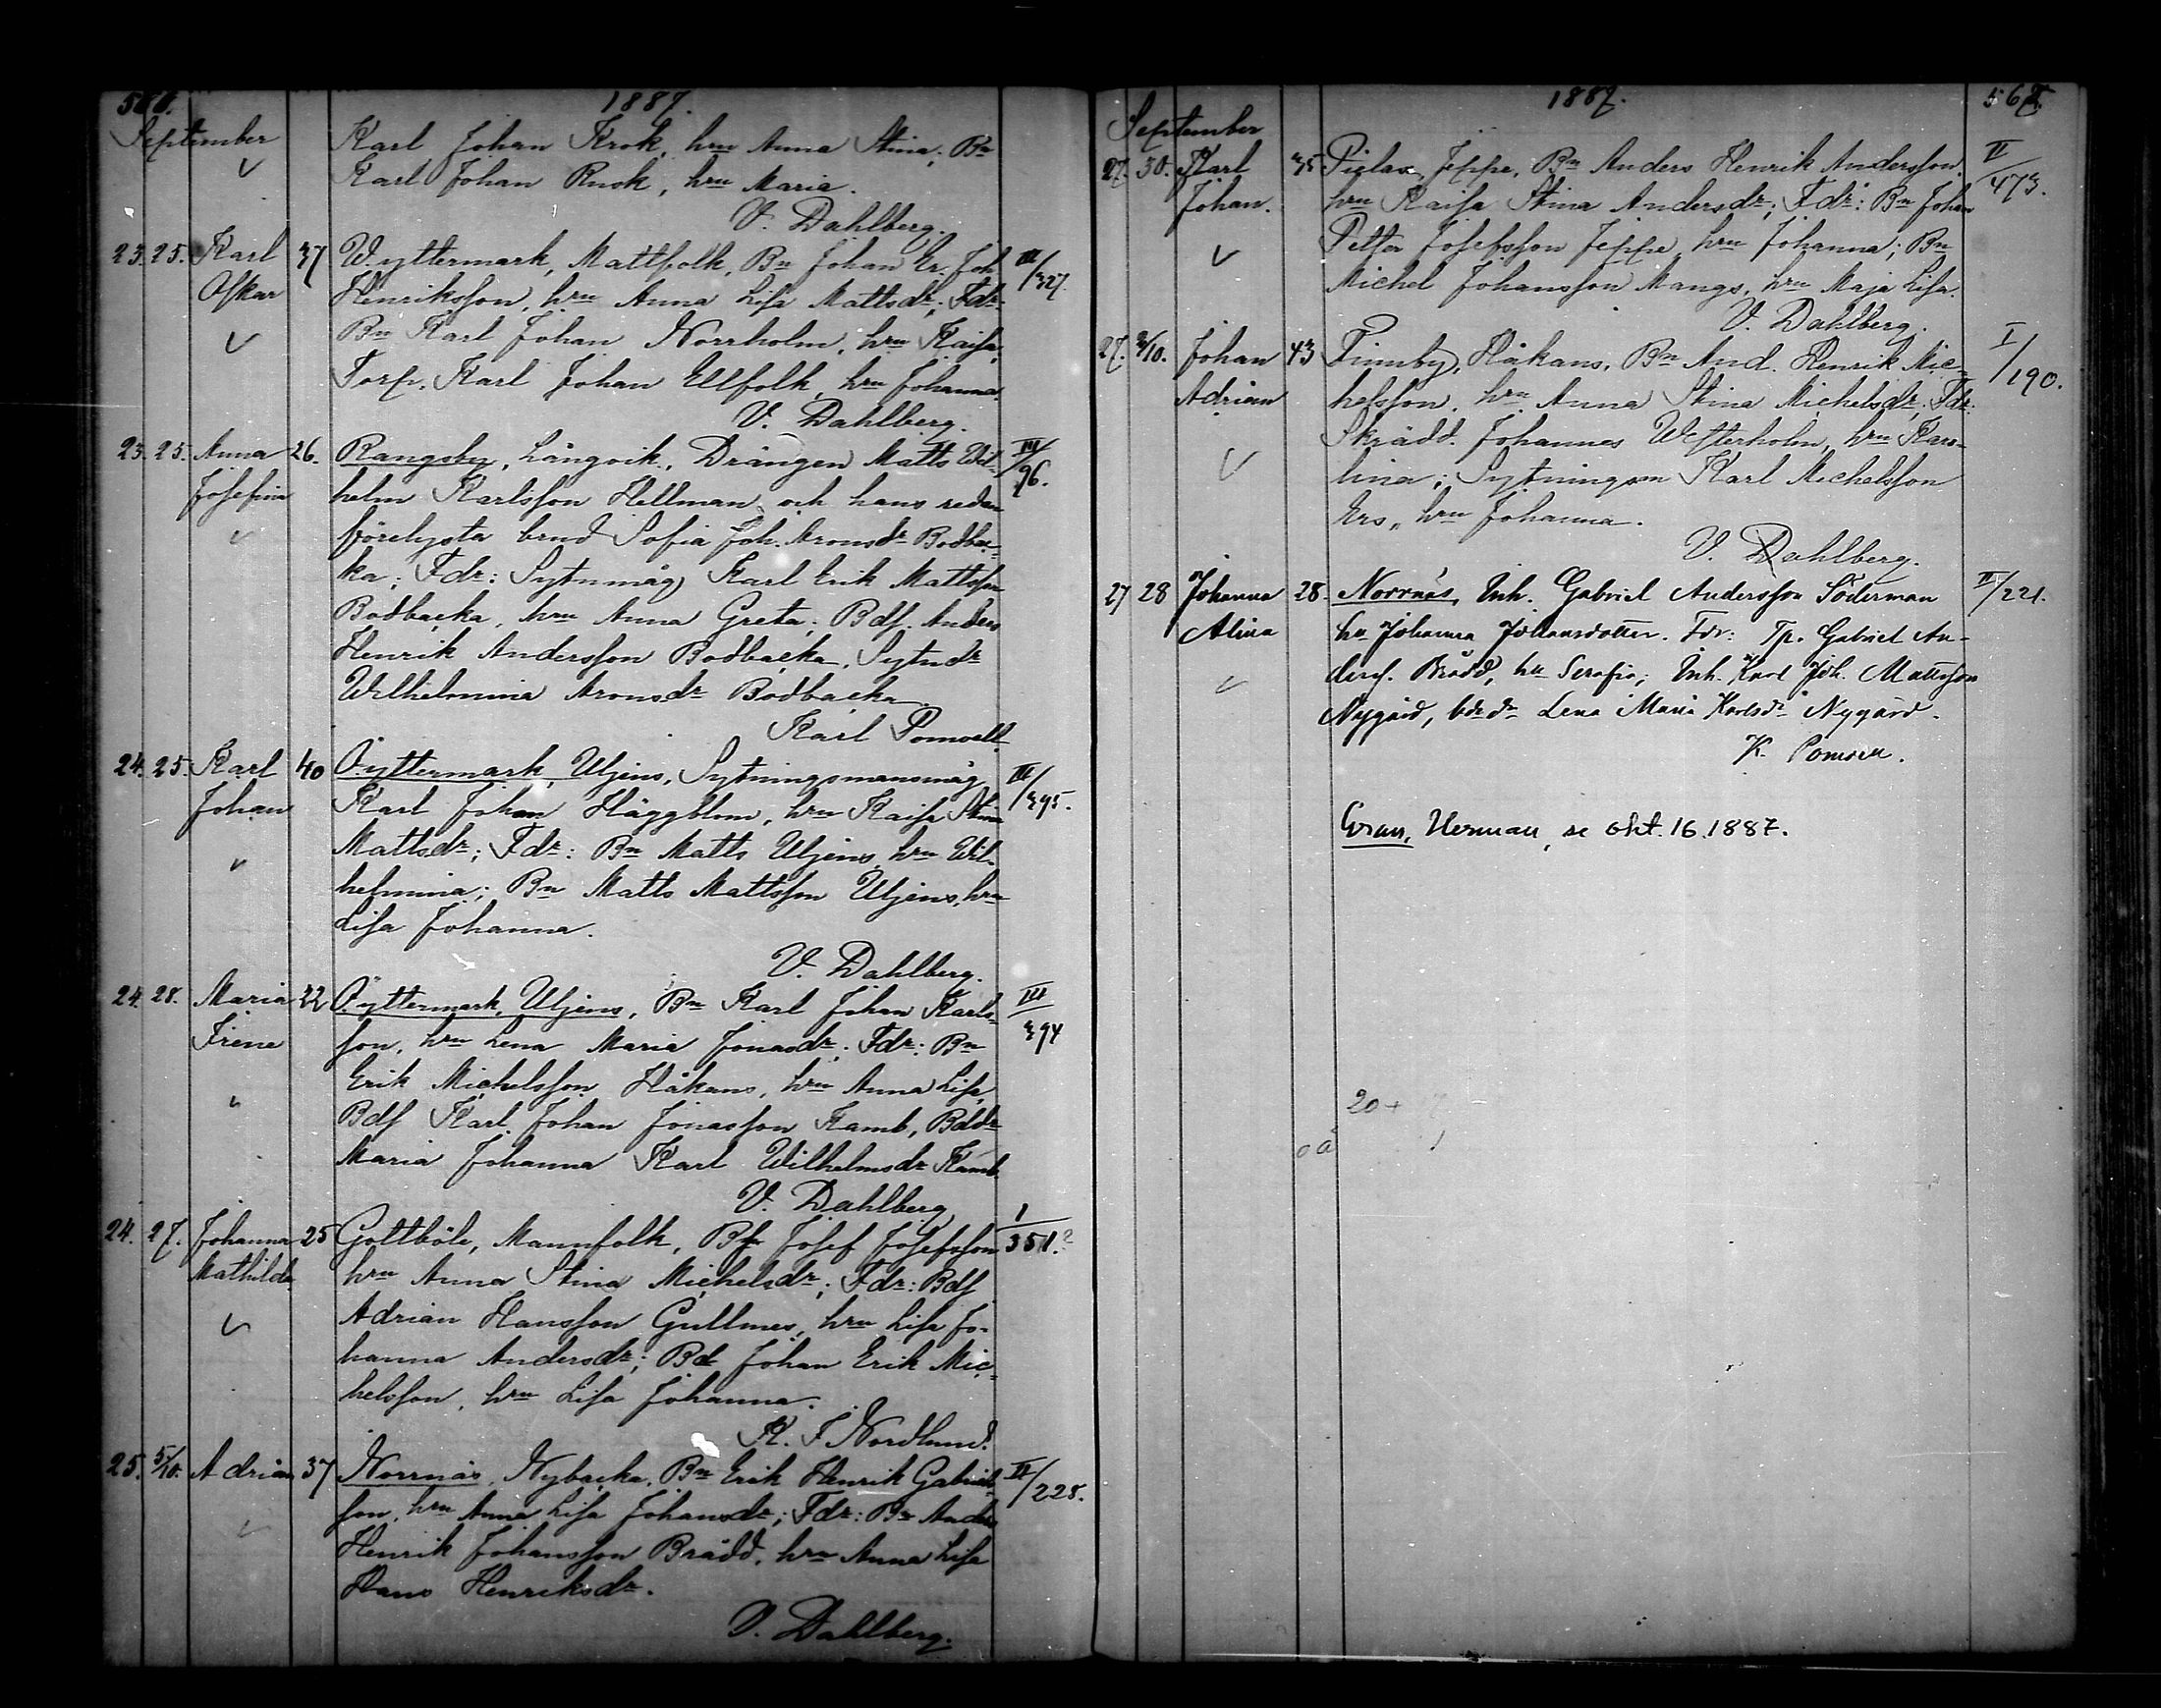 1887.
September
Karl Johan Krok, hru Anna Stina; Bn
Karl Johan Rusk, hru Maria.
V. Dahlberg.
23. 25. Karl 37 W. yttermark, Mattfolk, Bn Johan Er. Joh III/327.
Oskar Henriksson, hru Anna Lisa Mattsdr; Fdr:
Bn Karl Johan Norrholm, hru Kaisa,
Torp. Karl Johan Ellfolk, hru Johanna.
V. Dahlberg.
23. 25. Anna 26. Rangsby, Långvik, Drängen Matts Wil- III/96.
Josefina helm Karlsson Hellman och hans redan
förelysta brud Sofia Joh. Aronsdr Bodbac-
ka; Fdr: Sytnmåg Karl Erik Mattsson
Bodbacka, hru Anna Greta; Bdf. Anders
Henrik Andersson Bodbacka, Sytndr
Wilhelmina Aronsdr Bodbacka.
Karl Pomoell
24. 25. Karl 40 Ö.yttermark, Uljens, Sytningsmansmåg III/395.
Johan Karl Johan Häggblom, hru Kaisa Stina
Mattsdr; Fdr: Bn Matts Uljens, hru Wil-
helmina; Bn Matts Mattsson Uljens, hru
Lisa Johanna.
V. Dahlberg.
24. 28. Maria 22 Ö.yttermark, Uljens, Bn Karl Johan Karls- III/394
Irene son, hru Lena Maria Jonasdr; Fdr: Bn
Erik Michelsson Håkans, hru Anna Lisa,
Bdf Karl Johan Jonasson Kamb, Bddr
Maria Johanna Karl Wilhelmsdr Kamb.
V. Dahlberg
24. 27. Johanna 25 Gottböle, Mannfolk, Bf Josef Josefsson I/351.?
Mathilda hru Anna Stina Michelsdr; Fdr: Bdf
Adrian Hansson Gullmes, hru Lisa Jo-
hanna Andersdr; Bd Johan Erik Mic-
helsson, hru Lisa Johanna.
K. F Nordlund.
25. 5/10. Adrian 37 Norrnäs, Nybacka, Bn Erik Henrik Gabriels- II/228.
son, hru Anna Lisa Johansdr; Fdr: Bn Anders
Henrik Johansson Brådd, hru Anna Lisa
Hans Henriksdr.
V. Dahlberg.
1887. 567.
September
27. 30. Karl 35 Pielax, Jeppe, Bn Anders Henrik Andersson. II/473.
Johan. hru Kaisa Stina Andersdr; Fdr: Bn Johan
Petter Josefsson Jeppe, hru Johanna; Bn
Michel Johansson Mangs, hru Maja Lisa.
V. Dahlberg.
27. 2/10. Johan 43 Finnby, Håkans, Bn And. Henrik Mic- I/190.
Adrian helsson, hru Anna Stina Michelsdr; Fdr:
Skrädd. Johannes Westerholm, hru Karo-
lina; Sytningsm Karl Michelsson
Ers, hru Johanna.
V. Dahlberg.
27 28 Johanna 28. Norrnäs, Inh. Gabriel Andersson Söderman II/221.
Alina hu Johanna Johansdotter. Fdr: Tp. Gabriel An-
derss. Brådd, hu Serafia; Inh. Karl Joh. Mattsson
Nygård, bdr dr Lena Maria Karlsdr Nygård.
K. Pomoell.
Gran, Herman, se okt. 16. 1887.
20+